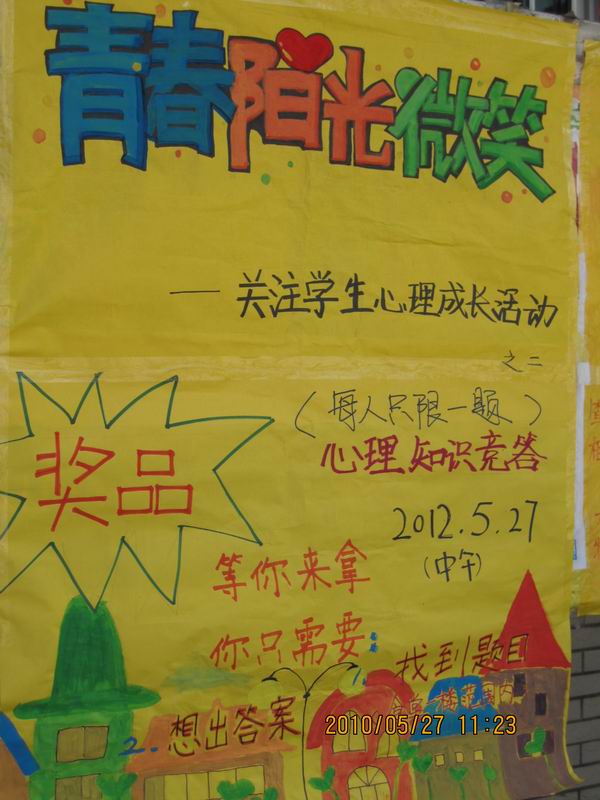 青春阳光微笑
— 关注学生心理成长活动
之二
(每人只限一题)
心理知识竞答
奖品
2012.5.27
(中午)
等你来拿
你只需要:
1. 找到题目
2. 想出答案
2010/05/27 11:23